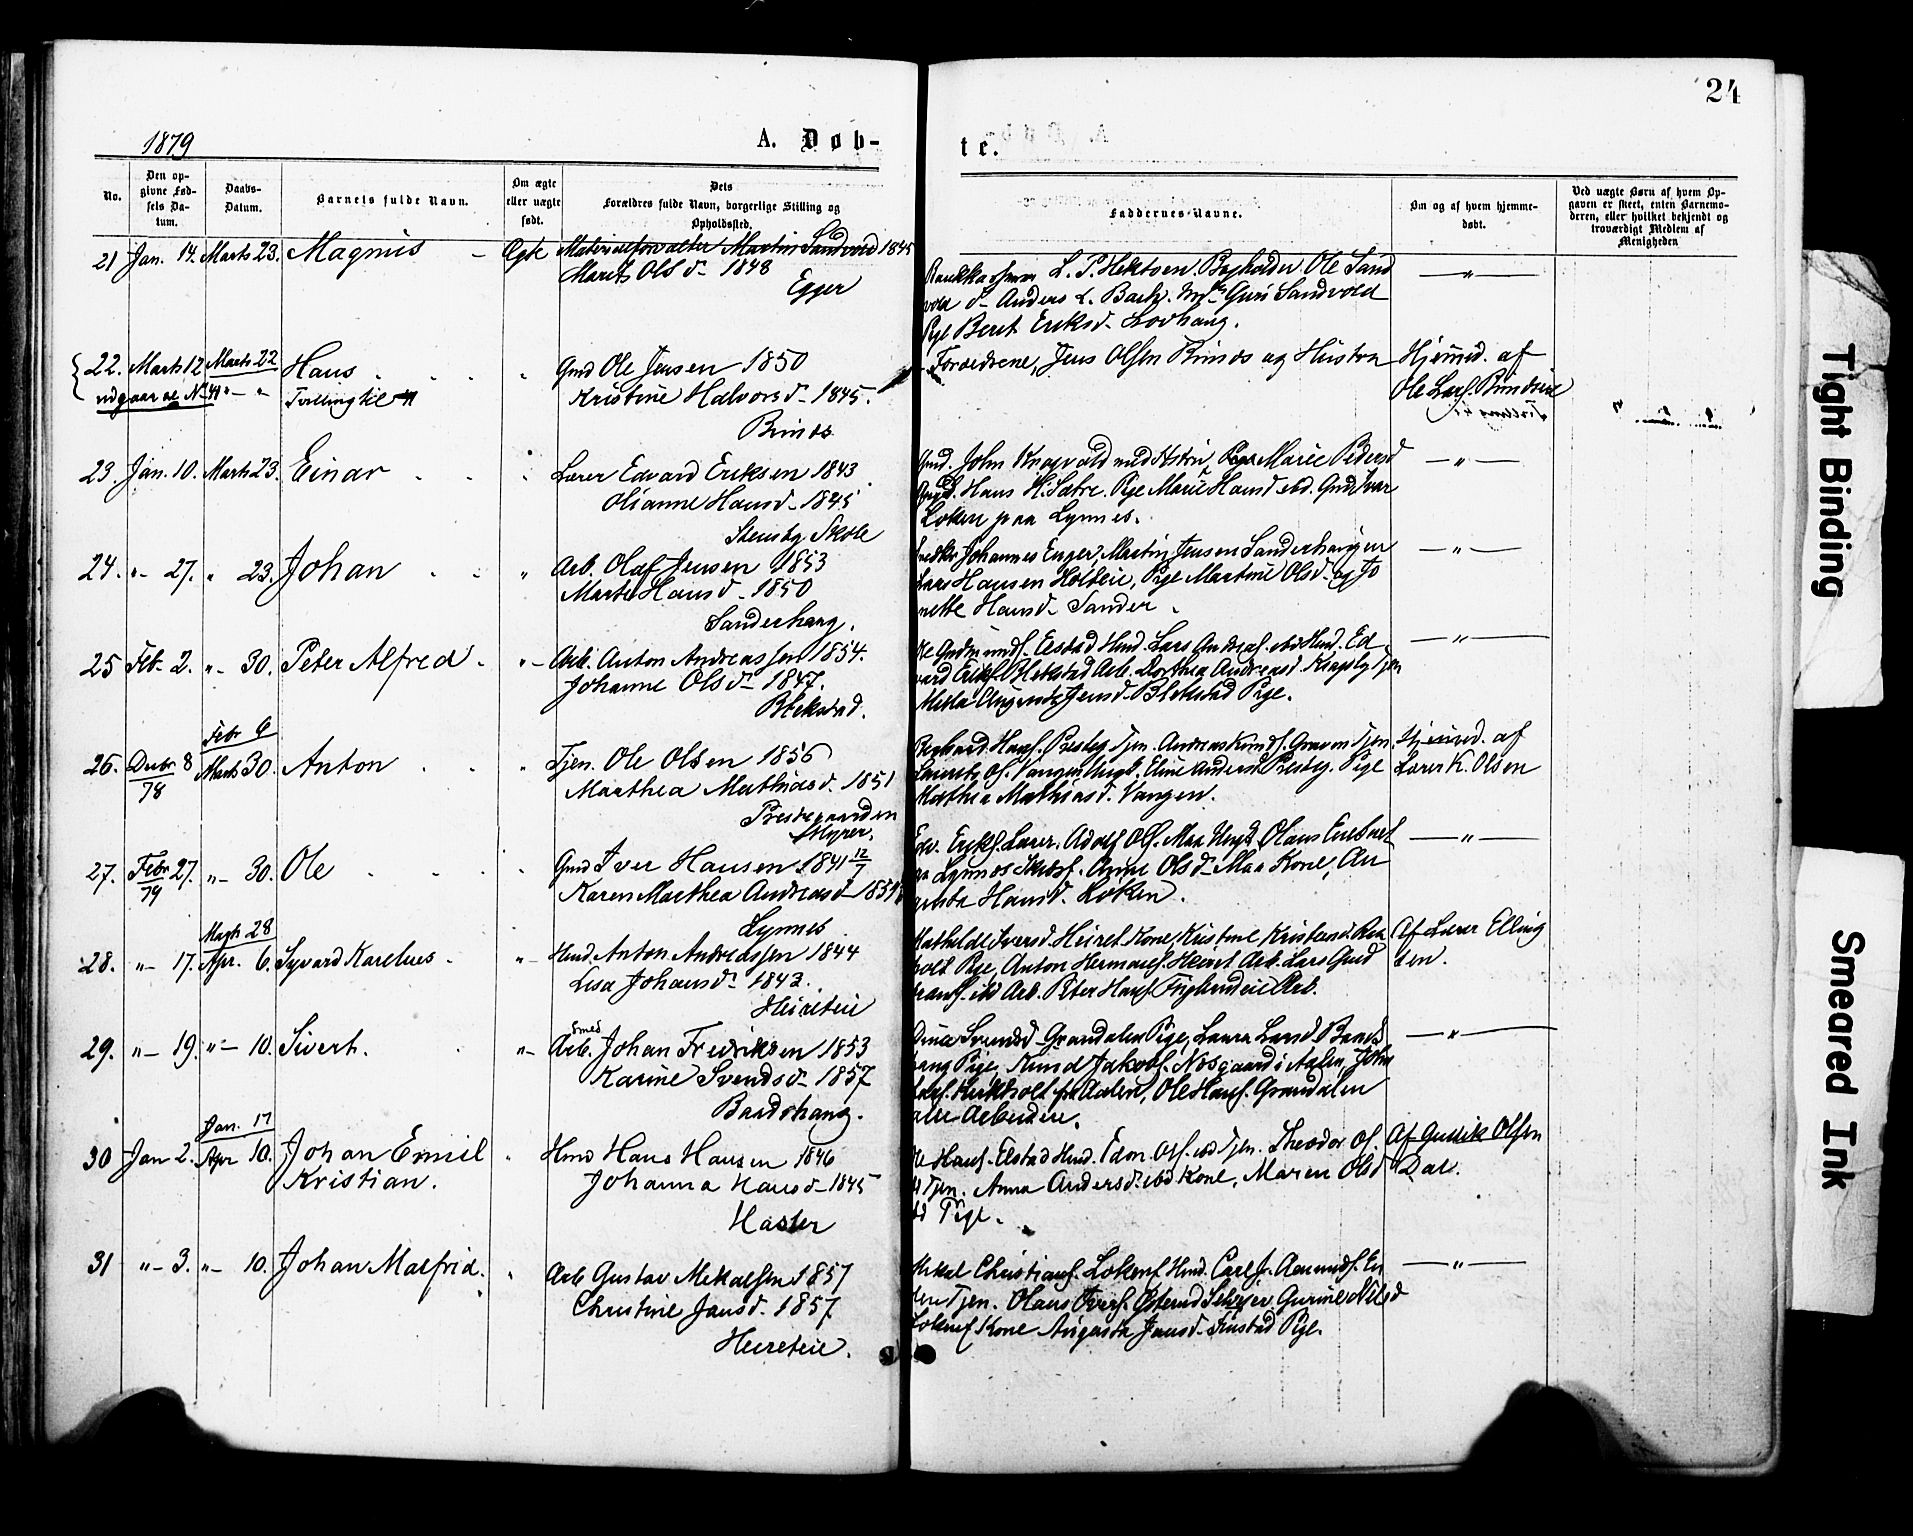 24
1879
A. Døb-
te.
No.
Den op-
givne Fød-
sels Da-
tum.
Daabs-
Datum.
Barnets fulde Navn.
Om ægte
eller uægte
født.
Dets
Forældres fulde Navn, borgerlige Stilling og
Opholdssted.
Faddernes Navne.
Om og af hvem hjemme-
døbt.
Ved uægte Børn af hvem Op-
gaven er skeet, enten Barnemo-
deren, eller hvilket bekjendt og
troværdigt Medlem af
Menigheden
21 Jan. 14. Marts 23. Magnus - Ægte Materialforvalter Martin Sandvold 1845
Marit Olsd. 1848
Egger
L. P. Hektoen. Bogholder Ole Sand
vold d- Anders L. Bach. Guri Sandvold
Pige Beret Eriksd. Lovhaug.
—"—
22. Marts 12 Marts 22 Hans " Gmd Ole Jensen 1850
udgaar se No 41 " — " Tvilling til
Kristine Halvorsd. 1845.
Brinos
Forældrene, Jens Olsen Brinos og Hustru
Hjemmed. af
Ole Lars.
23. Jan. 10. Marts 23. Einar " Lærer Edvard Eriksen 1843
Olianne Hansd. 1845
Stensby Skole
Gmd. John Kragvold med Hstru, Pige Marie Pedersd
Hans H. Sætre. Pige Marie Hansd ibd. Gmd Ivar
Løken paa Lynnes.
—"—
24. "- 27. " 23. Johan " Arb. Olaf Jensen 1853
Marte Hansd. 1850
Sanderhaug.
Johannes Enger, Martin Jensen Sanderhaugen
Lars Hansen Holteie, Pige Martine Olsd. og Jo
nette Hansd. Sander.
—"—
25 Feb. 2. "- 30. Peter Alfred - "- Arb. Anton Andreassen 1854.
Johanne Olsd. 1847.
Blekstad.
Elstad Hmd. Lars Andreas. ibd Hmd. Ed
vard Eriks. Blekstad Arb. Dorthea Andreasd. Tjen
Augusta Jensd. Blekstad Pige.
—"—
26. Decbr 8
78
Febr 6
Marts 30. Anton " Tjen. Ole Olsen 1856
Marthea Mathiasd. 1851
Prestegaarden
Myrer.
Hans. Presteg Tjen. Andreas Knuds. Graven Tjen.
Vangen Ungk. Eline Andersd Presteg. Pige
Mathea Mathiasd. Vangen.
Hjemmed. af
Lærer K. Olsen
27. Febr 27.
79
"- 30. Ole " Gmd Iver Hansen 1841 12/7
Karen Marthea Andreasd. 185
Lynnes
Edv. Eriks. Lærer. Adolf Ols. Maa Ungk. Olaus
Lynnes Anne Olsd. Maa Kone, Au
gusta Hansd. Løken.
—"—
28. "- 17. Marts 28
Apr. 6. Syvard Karelius - "- Hmd. Anton Andreassen 1844
Lisa Johansd. 1843.
Heireteie
Mathilde Iversd. Heiret Kone, Kristine Kristensd.
holt Pige, Anton Hermans. Heiret Arb. Lars Gud
brands. ibd Arb. Peter Hans. Arb.
Af Lærer Elling
sen.
29. "- 19. "- 10. Sivert. "- Smed
Arb. Johan Fredriksen 1853
Karine Svendsd. 1857
Baardshaug.
Svendsd Grandalen Pige, Laura Larsd Baards
haug Pige. Knud Jakobs. i Aalen, John
Lars. Kirkholt fra Aalen, Ole Hans. Grandalen
alle Arbeidere.
—"—
30 Jan 2. Jan. 17
Apr 10. Johan Emil
Kristian.
" Hmd Hans Hansen 1846
Johanna Hansd. 1845
Haster
Ole Hans. Elstad Hmd. Edon. Ols. ibd Tjen. Theodor Ols.
ibd Tjen. Anna Andersd. ibd Kone, Maren Olsd
ibd Pige.
Af Gullik Olsen
Dal.
31 "- 3. "- 10. Johan Malfrid. " Arb Gustav Mikalsen 1857
Christine Jansd. 1857
Heireteie.
Mikal Christians. Løken Hmd. Aamunds.
Tjen. Olaus Ivers. Østerud Gurine Nilsd
Kone Augusta Jansd. Finstad Pige.
—"—
Tight Binding
Smeared Ink